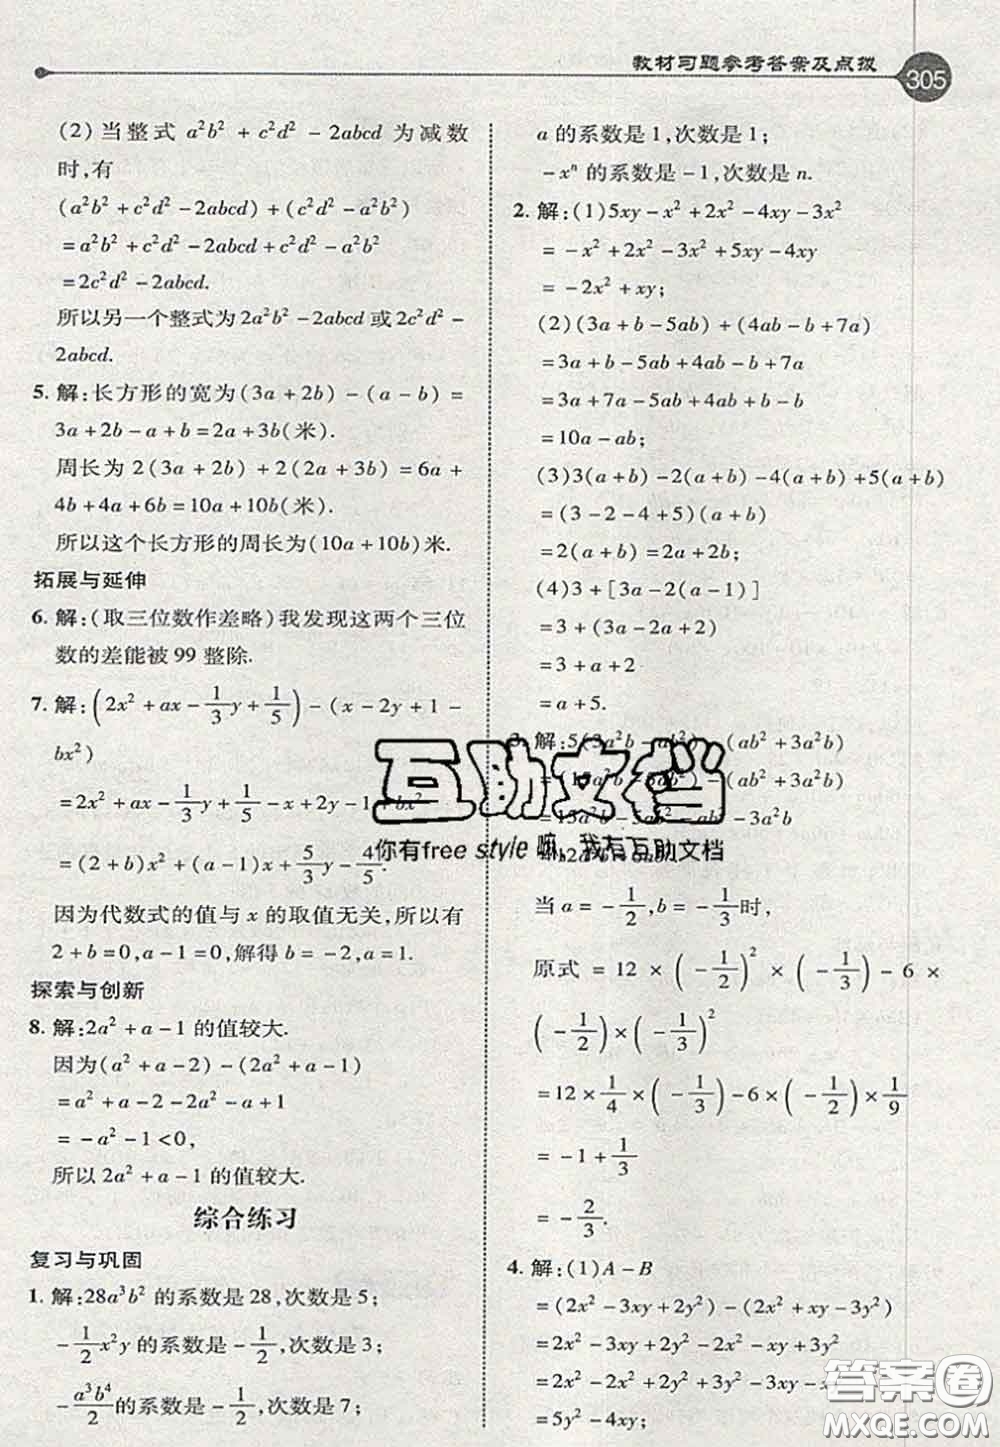 教材习题参考答案及点拨
305
(2)当整式 a²b² + c²d² - 2abcd 为减数
时,有
(a²b² + c²d² - 2abcd) + (c²d² - a²b²)
= a²b² + c²d² - 2abcd + c²d² - a²b²
= 2c²d² - 2abcd.
所以另一个整式为 2a²b² - 2abcd 或 2c²d² -
2abcd.
5. 解:长方形的宽为(3a + 2b) - (a - b) =
3a + 2b - a + b = 2a + 3b(米).
周长为 2(3a + 2b) + 2(2a + 3b) = 6a +
4b + 4a + 6b = 10a + 10b(米).
所以这个长方形的周长为(10a + 10b)米.
拓展与延伸
6. 解:(取三位数作差略)我发现这两个三位
数的差能被 99 整除.
7. 解:(2x² + ax - 1/3 y + 1/5) - (x - 2y + 1 -
bx²)
= 2x² + ax - 1/3 y + 1/5 - x + 2y - 1 + bx²
= (2 + b)x² + (a - 1)x + 5/3 y - 4/5.
因为代数式的值与 x 的取值无关,所以有
2 + b = 0, a - 1 = 0,解得 b = -2, a = 1.
探索与创新
8. 解:2a² + a - 1 的值较大.
因为(a² + a - 2) - (2a² + a - 1)
= a² + a - 2 - 2a² - a + 1
= -a² - 1 < 0,
所以 2a² + a - 1 的值较大.
综合练习
复习与巩固
1. 解:28a³b² 的系数是 28,次数是 5;
-1/2 x²y 的系数是 -1/2,次数是 3;
-a³b⁴/2 的系数是 -1/2,次数是 7;
a 的系数是 1,次数是 1;
-xⁿ 的系数是 -1,次数是 n.
2. 解:(1)5xy - x² + 2x² - 4xy - 3x²
= -x² + 2x² - 3x² + 5xy - 4xy
= -2x² + xy;
(2)(3a + b - 5ab) + (4ab - b + 7a)
= 3a + b - 5ab + 4ab - b + 7a
= 3a + 7a - 5ab + 4ab + b - b
= 10a - ab;
(3)3(a + b) - 2(a + b) - 4(a + b) + 5(a + b)
= (3 - 2 - 4 + 5)(a + b)
= 2(a + b) = 2a + 2b;
(4)3 + [3a - 2(a - 1)]
= 3 + (3a - 2a + 2)
= 3 + a + 2
= a + 5.
3. 解:5(3a²b - ab²) - (ab² + 3a²b)
= (15a²b - 5ab²) - (ab² + 3a²b)
= 15a²b - 5ab² - ab² - 3a²b
当 a = -1/2, b = -1/3 时,
原式 = 12 × (-1/2)² × (-1/3) - 6 ×
(-1/2) × (-1/3)²
= 12 × 1/4 × (-1/3) - 6 × (-1/2) × 1/9
= -1 + 1/3
= -2/3.
4. 解:(1)A - B
= (2x² - 3xy + 2y²) - (2x² + xy - 3y²)
= 2x² - 3xy + 2y² - 2x² - xy + 3y²
= 2x² - 2x² + 2y² + 3y² - 3xy - xy
= 5y² - 4xy;
互助文档
你有free style 嘛,我有互助文档
答案圈
MXQE.COM